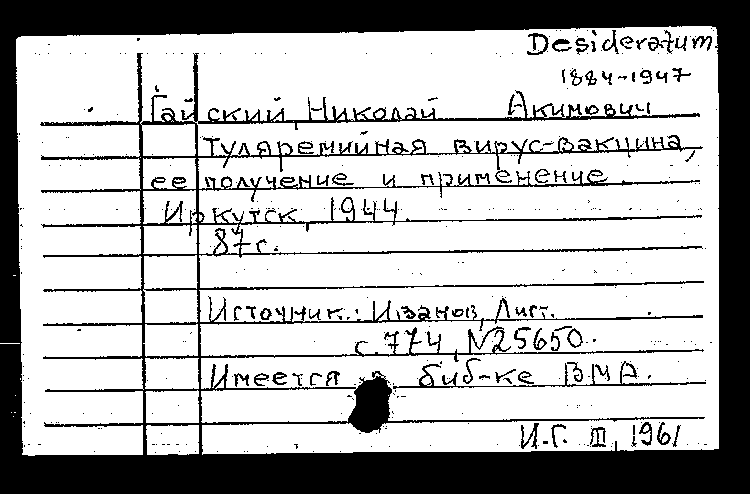 Desideratum.
1884-1947
Гайский, Николай Акимович
Туляремийная вирус-вакцина,
ее получение и применение.
Иркутск, 1944.
87с.
Источник: Иванов, Лист.
с.774, №25650.
Имеется в биб-ке ВМА.
И.Г. III, 1961